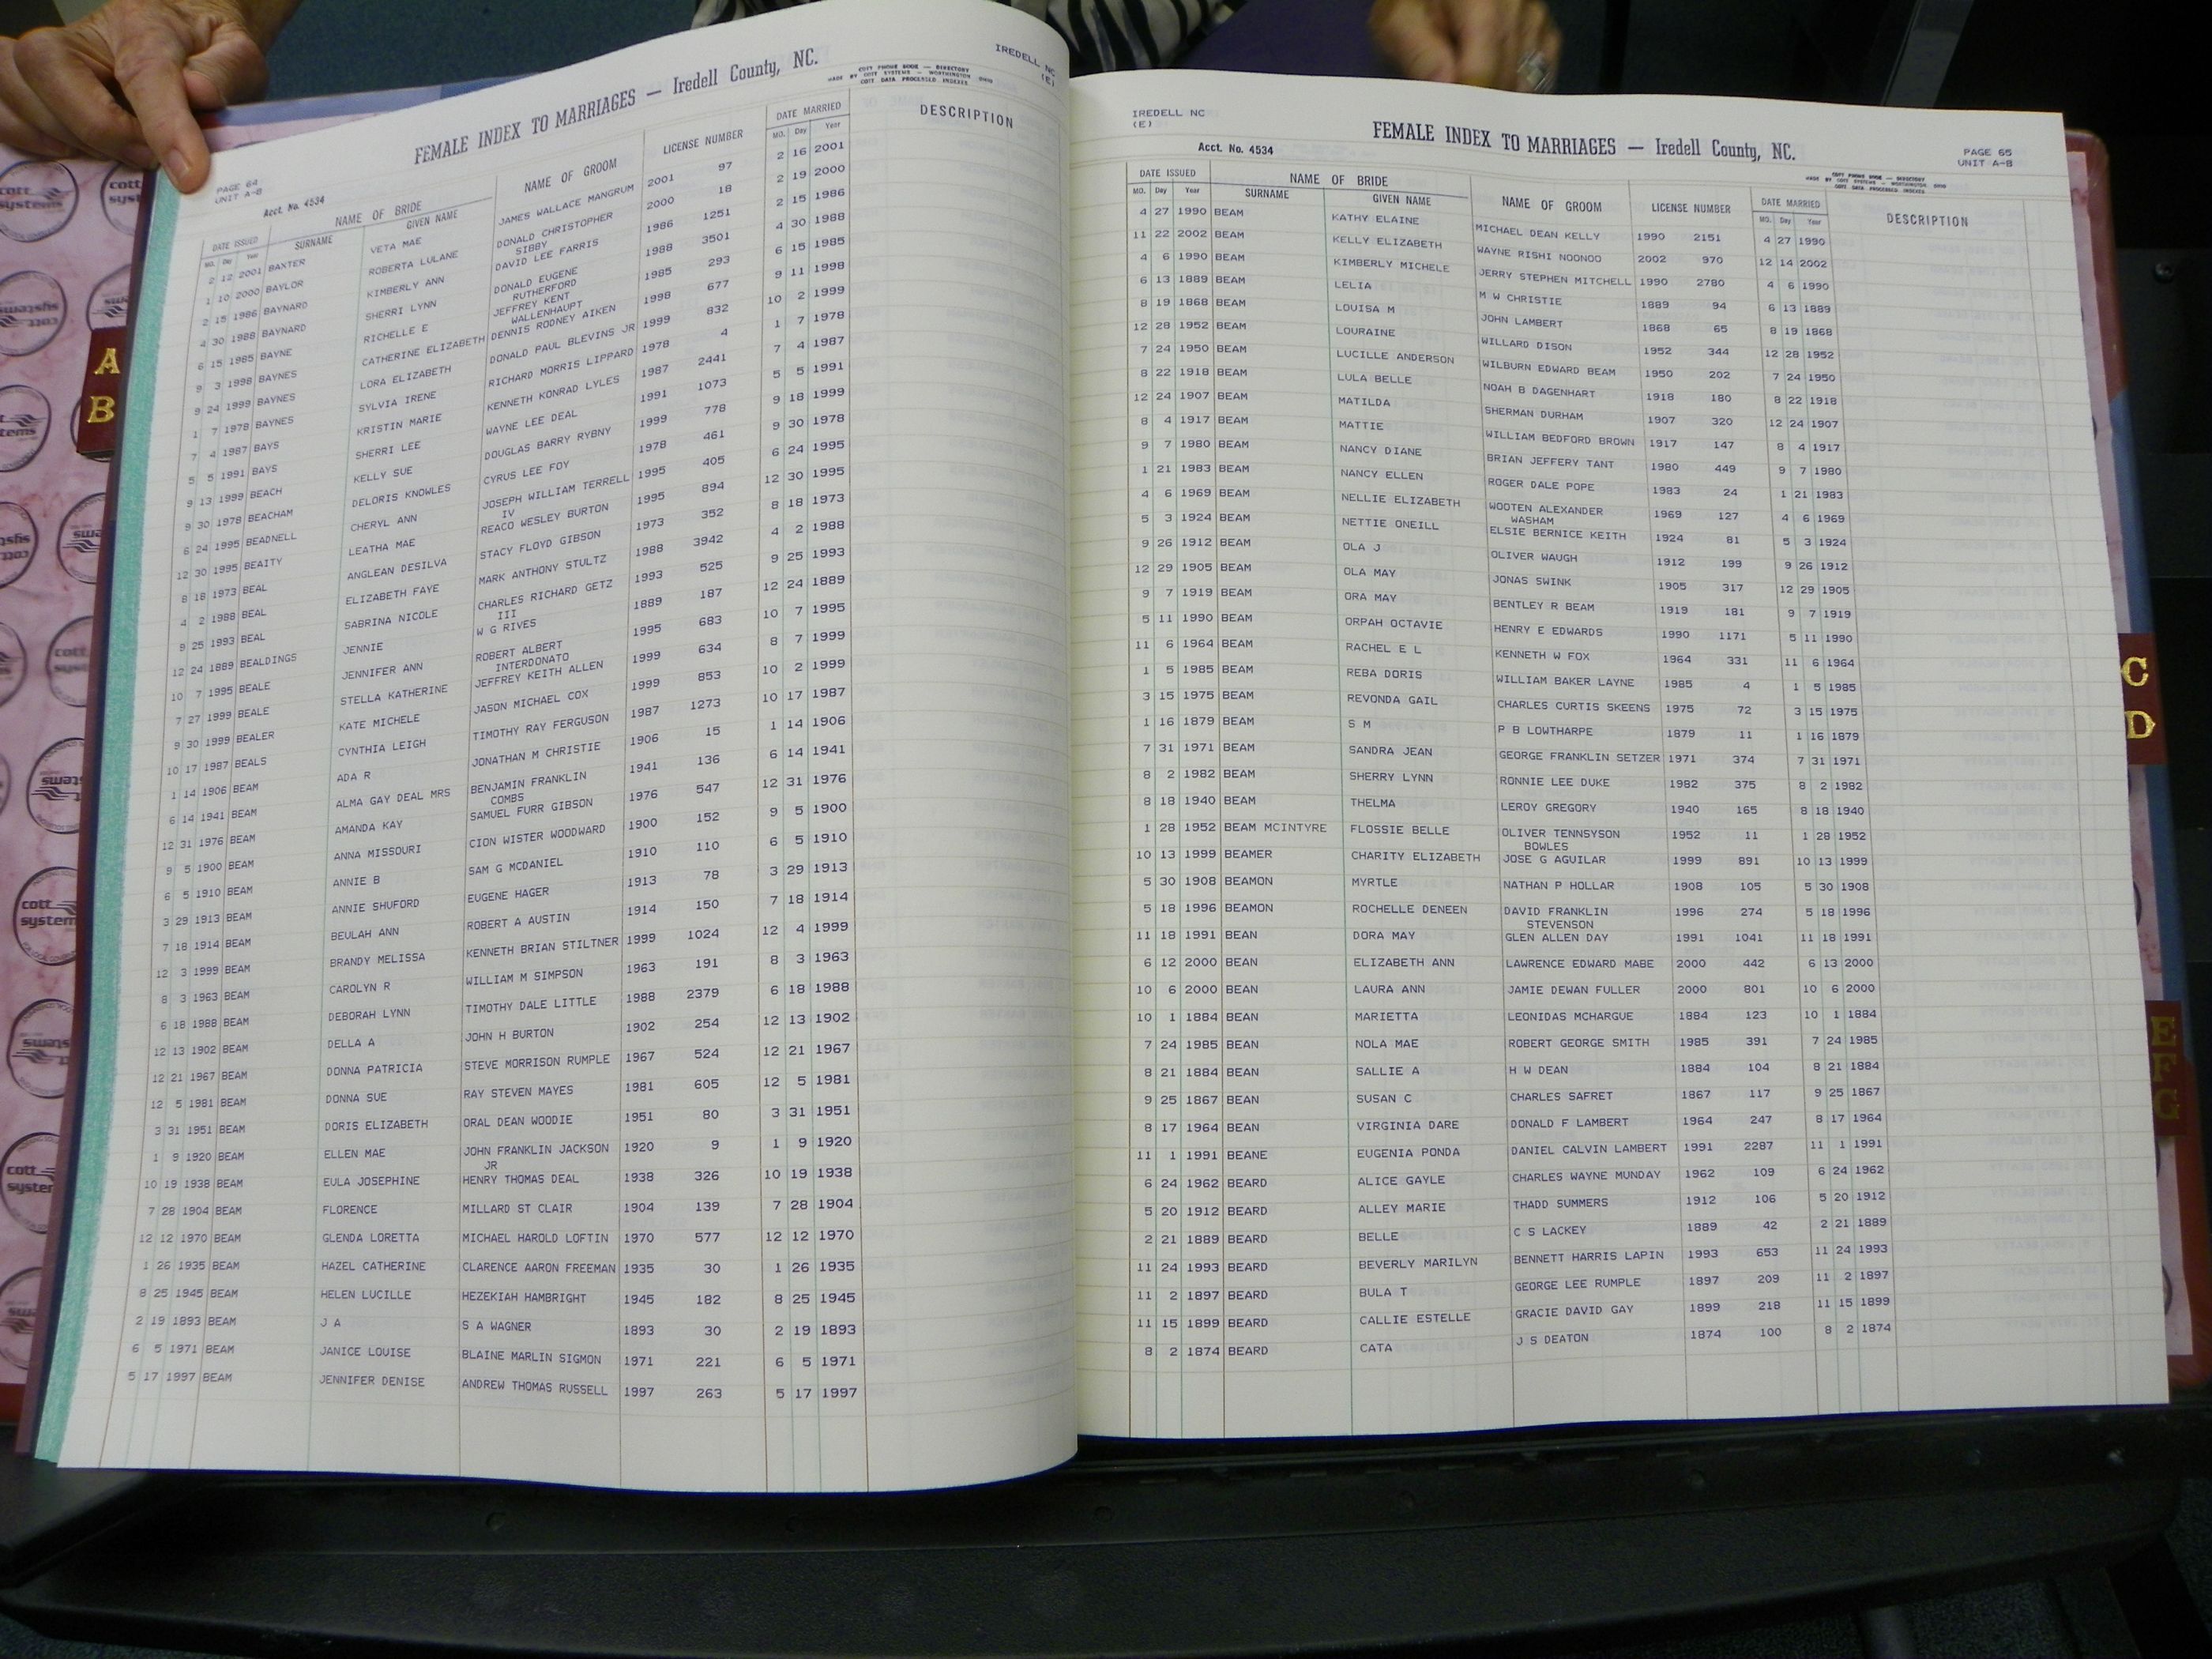 IREDELL NC
(E)
FEMALE INDEX TO MARRIAGES — Iredell County, NC.
COTT PHONE BOOK — DIRECTORY
MADE BY COTT SYSTEMS — WORTHINGTON OHIO
COTT DATA PROCESSED INDEXES
PAGE 64
UNIT A-B
Acct. No. 4534
DATE ISSUED NAME OF BRIDE NAME OF GROOM LICENSE NUMBER DATE MARRIED DESCRIPTION
MO. Day Year SURNAME GIVEN NAME MO. Day Year
2 12 2001 BAXTER VETA MAE JAMES WALLACE MANGRUM 2001 97 2 16 2001
1 10 2000 BAYLOR ROBERTA LULANE DONALD CHRISTOPHER 2000 18 2 19 2000
SIBBY
2 15 1986 BAYNARD KIMBERLY ANN DAVID LEE FARRIS 1986 1251 2 15 1986
4 30 1988 BAYNARD SHERRI LYNN DONALD EUGENE 1988 3501 4 30 1988
RUTHERFORD
6 15 1985 BAYNE RICHELLE E JEFFREY KENT 1985 293 6 15 1985
WALLENHAUPT
9 3 1998 BAYNES CATHERINE ELIZABETH DENNIS RODNEY AIKEN 1998 677 9 11 1998
9 24 1999 BAYNES LORA ELIZABETH DONALD PAUL BLEVINS JR 1999 832 10 2 1999
1 7 1978 BAYNES SYLVIA IRENE RICHARD MORRIS LIPPARD 1978 4 1 7 1978
7 4 1987 BAYS KRISTIN MARIE KENNETH KONRAD LYLES 1987 2441 7 4 1987
5 5 1991 BAYS SHERRI LEE WAYNE LEE DEAL 1991 1073 5 5 1991
9 13 1999 BEACH KELLY SUE DOUGLAS BARRY RYBNY 1999 778 9 18 1999
9 30 1978 BEACHAM DELORIS KNOWLES CYRUS LEE FOY 1978 461 9 30 1978
6 24 1995 BEADNELL CHERYL ANN JOSEPH WILLIAM TERRELL 1995 405 6 24 1995
IV
12 30 1995 BEAITY LEATHA MAE REACO WESLEY BURTON 1995 894 12 30 1995
8 18 1973 BEAL ANGLEAN DESILVA STACY FLOYD GIBSON 1973 352 8 18 1973
4 2 1988 BEAL ELIZABETH FAYE MARK ANTHONY STULTZ 1988 3942 4 2 1988
9 25 1993 BEAL SABRINA NICOLE CHARLES RICHARD GETZ 1993 525 9 25 1993
III
12 24 1889 BEALDINGS JENNIE W G RIVES 1889 187 12 24 1889
10 7 1995 BEALE JENNIFER ANN ROBERT ALBERT 1995 683 10 7 1995
INTERDONATO
7 27 1999 BEALE STELLA KATHERINE JEFFREY KEITH ALLEN 1999 634 8 7 1999
9 30 1999 BEALER KATE MICHELE JASON MICHAEL COX 1999 853 10 2 1999
10 17 1987 BEALS CYNTHIA LEIGH TIMOTHY RAY FERGUSON 1987 1273 10 17 1987
1 14 1906 BEAM ADA R JONATHAN M CHRISTIE 1906 15 1 14 1906
6 14 1941 BEAM ALMA GAY DEAL MRS BENJAMIN FRANKLIN 1941 136 6 14 1941
COMBS
12 31 1976 BEAM AMANDA KAY SAMUEL FURR GIBSON 1976 547 12 31 1976
9 5 1900 BEAM ANNA MISSOURI CION WISTER WOODWARD 1900 152 9 5 1900
6 5 1910 BEAM ANNIE B SAM G MCDANIEL 1910 110 6 5 1910
3 29 1913 BEAM ANNIE SHUFORD EUGENE HAGER 1913 78 3 29 1913
7 18 1914 BEAM BEULAH ANN ROBERT A AUSTIN 1914 150 7 18 1914
12 3 1999 BEAM BRANDY MELISSA KENNETH BRIAN STILTNER 1999 1024 12 4 1999
8 3 1963 BEAM CAROLYN R WILLIAM M SIMPSON 1963 191 8 3 1963
6 18 1988 BEAM DEBORAH LYNN TIMOTHY DALE LITTLE 1988 2379 6 18 1988
12 13 1902 BEAM DELLA A JOHN H BURTON 1902 254 12 13 1902
12 21 1967 BEAM DONNA PATRICIA STEVE MORRISON RUMPLE 1967 524 12 21 1967
12 5 1981 BEAM DONNA SUE RAY STEVEN MAYES 1981 605 12 5 1981
3 31 1951 BEAM DORIS ELIZABETH ORAL DEAN WOODIE 1951 80 3 31 1951
1 9 1920 BEAM ELLEN MAE JOHN FRANKLIN JACKSON 1920 9 1 9 1920
JR
10 19 1938 BEAM EULA JOSEPHINE HENRY THOMAS DEAL 1938 326 10 19 1938
7 28 1904 BEAM FLORENCE MILLARD ST CLAIR 1904 139 7 28 1904
12 12 1970 BEAM GLENDA LORETTA MICHAEL HAROLD LOFTIN 1970 577 12 12 1970
1 26 1935 BEAM HAZEL CATHERINE CLARENCE AARON FREEMAN 1935 30 1 26 1935
8 25 1945 BEAM HELEN LUCILLE HEZEKIAH HAMBRIGHT 1945 182 8 25 1945
2 19 1893 BEAM J A S A WAGNER 1893 30 2 19 1893
6 5 1971 BEAM JANICE LOUISE BLAINE MARLIN SIGMON 1971 221 6 5 1971
5 17 1997 BEAM JENNIFER DENISE ANDREW THOMAS RUSSELL 1997 263 5 17 1997
IREDELL NC
(E)
FEMALE INDEX TO MARRIAGES — Iredell County, NC.
Acct. No. 4534
PAGE 65
UNIT A-B
COTT PHONE BOOK — DIRECTORY
MADE BY COTT SYSTEMS — WORTHINGTON OHIO
COTT DATA PROCESSED INDEXES
DATE ISSUED NAME OF BRIDE NAME OF GROOM LICENSE NUMBER DATE MARRIED DESCRIPTION
MO. Day Year SURNAME GIVEN NAME MO. Day Year
4 27 1990 BEAM KATHY ELAINE MICHAEL DEAN KELLY 1990 2151 4 27 1990
11 22 2002 BEAM KELLY ELIZABETH WAYNE RISHI NOONOO 2002 970 12 14 2002
4 6 1990 BEAM KIMBERLY MICHELE JERRY STEPHEN MITCHELL 1990 2780 4 6 1990
6 13 1889 BEAM LELIA M W CHRISTIE 1889 94 6 13 1889
8 19 1868 BEAM LOUISA M JOHN LAMBERT 1868 65 8 19 1868
12 28 1952 BEAM LOURAINE WILLARD DISON 1952 344 12 28 1952
7 24 1950 BEAM LUCILLE ANDERSON WILBURN EDWARD BEAM 1950 202 7 24 1950
8 22 1918 BEAM LULA BELLE NOAH B DAGENHART 1918 180 8 22 1918
12 24 1907 BEAM MATILDA SHERMAN DURHAM 1907 320 12 24 1907
8 4 1917 BEAM MATTIE WILLIAM BEDFORD BROWN 1917 147 8 4 1917
9 7 1980 BEAM NANCY DIANE BRIAN JEFFERY TANT 1980 449 9 7 1980
1 21 1983 BEAM NANCY ELLEN ROGER DALE POPE 1983 24 1 21 1983
4 6 1969 BEAM NELLIE ELIZABETH WOOTEN ALEXANDER 1969 127 4 6 1969
WASHAM
5 3 1924 BEAM NETTIE ONEILL ELSIE BERNICE KEITH 1924 81 5 3 1924
9 26 1912 BEAM OLA J OLIVER WAUGH 1912 199 9 26 1912
12 29 1905 BEAM OLA MAY JONAS SWINK 1905 317 12 29 1905
9 7 1919 BEAM ORA MAY BENTLEY R BEAM 1919 181 9 7 1919
5 11 1990 BEAM ORPAH OCTAVIE HENRY E EDWARDS 1990 1171 5 11 1990
11 6 1964 BEAM RACHEL E L KENNETH W FOX 1964 331 11 6 1964
1 5 1985 BEAM REBA DORIS WILLIAM BAKER LAYNE 1985 4 1 5 1985
3 15 1975 BEAM REVONDA GAIL CHARLES CURTIS SKEENS 1975 72 3 15 1975
1 16 1879 BEAM S M P B LOWTHARPE 1879 11 1 16 1879
7 31 1971 BEAM SANDRA JEAN GEORGE FRANKLIN SETZER 1971 374 7 31 1971
8 2 1982 BEAM SHERRY LYNN RONNIE LEE DUKE 1982 375 8 2 1982
8 18 1940 BEAM THELMA LEROY GREGORY 1940 165 8 18 1940
1 28 1952 BEAM MCINTYRE FLOSSIE BELLE OLIVER TENNSYSON 1952 11 1 28 1952
BOWLES
10 13 1999 BEAMER CHARITY ELIZABETH JOSE G AGUILAR 1999 891 10 13 1999
5 30 1908 BEAMON MYRTLE NATHAN P HOLLAR 1908 105 5 30 1908
5 18 1996 BEAMON ROCHELLE DENEEN DAVID FRANKLIN 1996 274 5 18 1996
STEVENSON
11 18 1991 BEAN DORA MAY GLEN ALLEN DAY 1991 1041 11 18 1991
6 12 2000 BEAN ELIZABETH ANN LAWRENCE EDWARD MABE 2000 442 6 13 2000
10 6 2000 BEAN LAURA ANN JAMIE DEWAN FULLER 2000 801 10 6 2000
10 1 1884 BEAN MARIETTA LEONIDAS MCHARGUE 1884 123 10 1 1884
7 24 1985 BEAN NOLA MAE ROBERT GEORGE SMITH 1985 391 7 24 1985
8 21 1884 BEAN SALLIE A H W DEAN 1884 104 8 21 1884
9 25 1867 BEAN SUSAN C CHARLES SAFRET 1867 117 9 25 1867
8 17 1964 BEAN VIRGINIA DARE DONALD F LAMBERT 1964 247 8 17 1964
11 1 1991 BEANE EUGENIA PONDA DANIEL CALVIN LAMBERT 1991 2287 11 1 1991
6 24 1962 BEARD ALICE GAYLE CHARLES WAYNE MUNDAY 1962 109 6 24 1962
5 20 1912 BEARD ALLEY MARIE THADD SUMMERS 1912 106 5 20 1912
2 21 1889 BEARD BELLE C S LACKEY 1889 42 2 21 1889
11 24 1993 BEARD BEVERLY MARILYN BENNETT HARRIS LAPIN 1993 653 11 24 1993
11 2 1897 BEARD BULA T GEORGE LEE RUMPLE 1897 209 11 2 1897
11 15 1899 BEARD CALLIE ESTELLE GRACIE DAVID GAY 1899 218 11 15 1899
8 2 1874 BEARD CATA J S DEATON 1874 100 8 2 1874
A
B
C
D
E
F
G
cott
systems